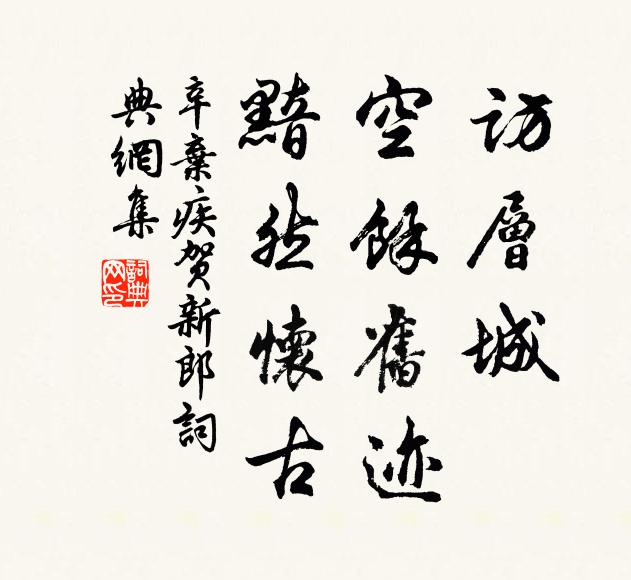 访層城
空餘舊迹
黯然懷古
辛棄疾賀新郎詞
典網集
詞典网印